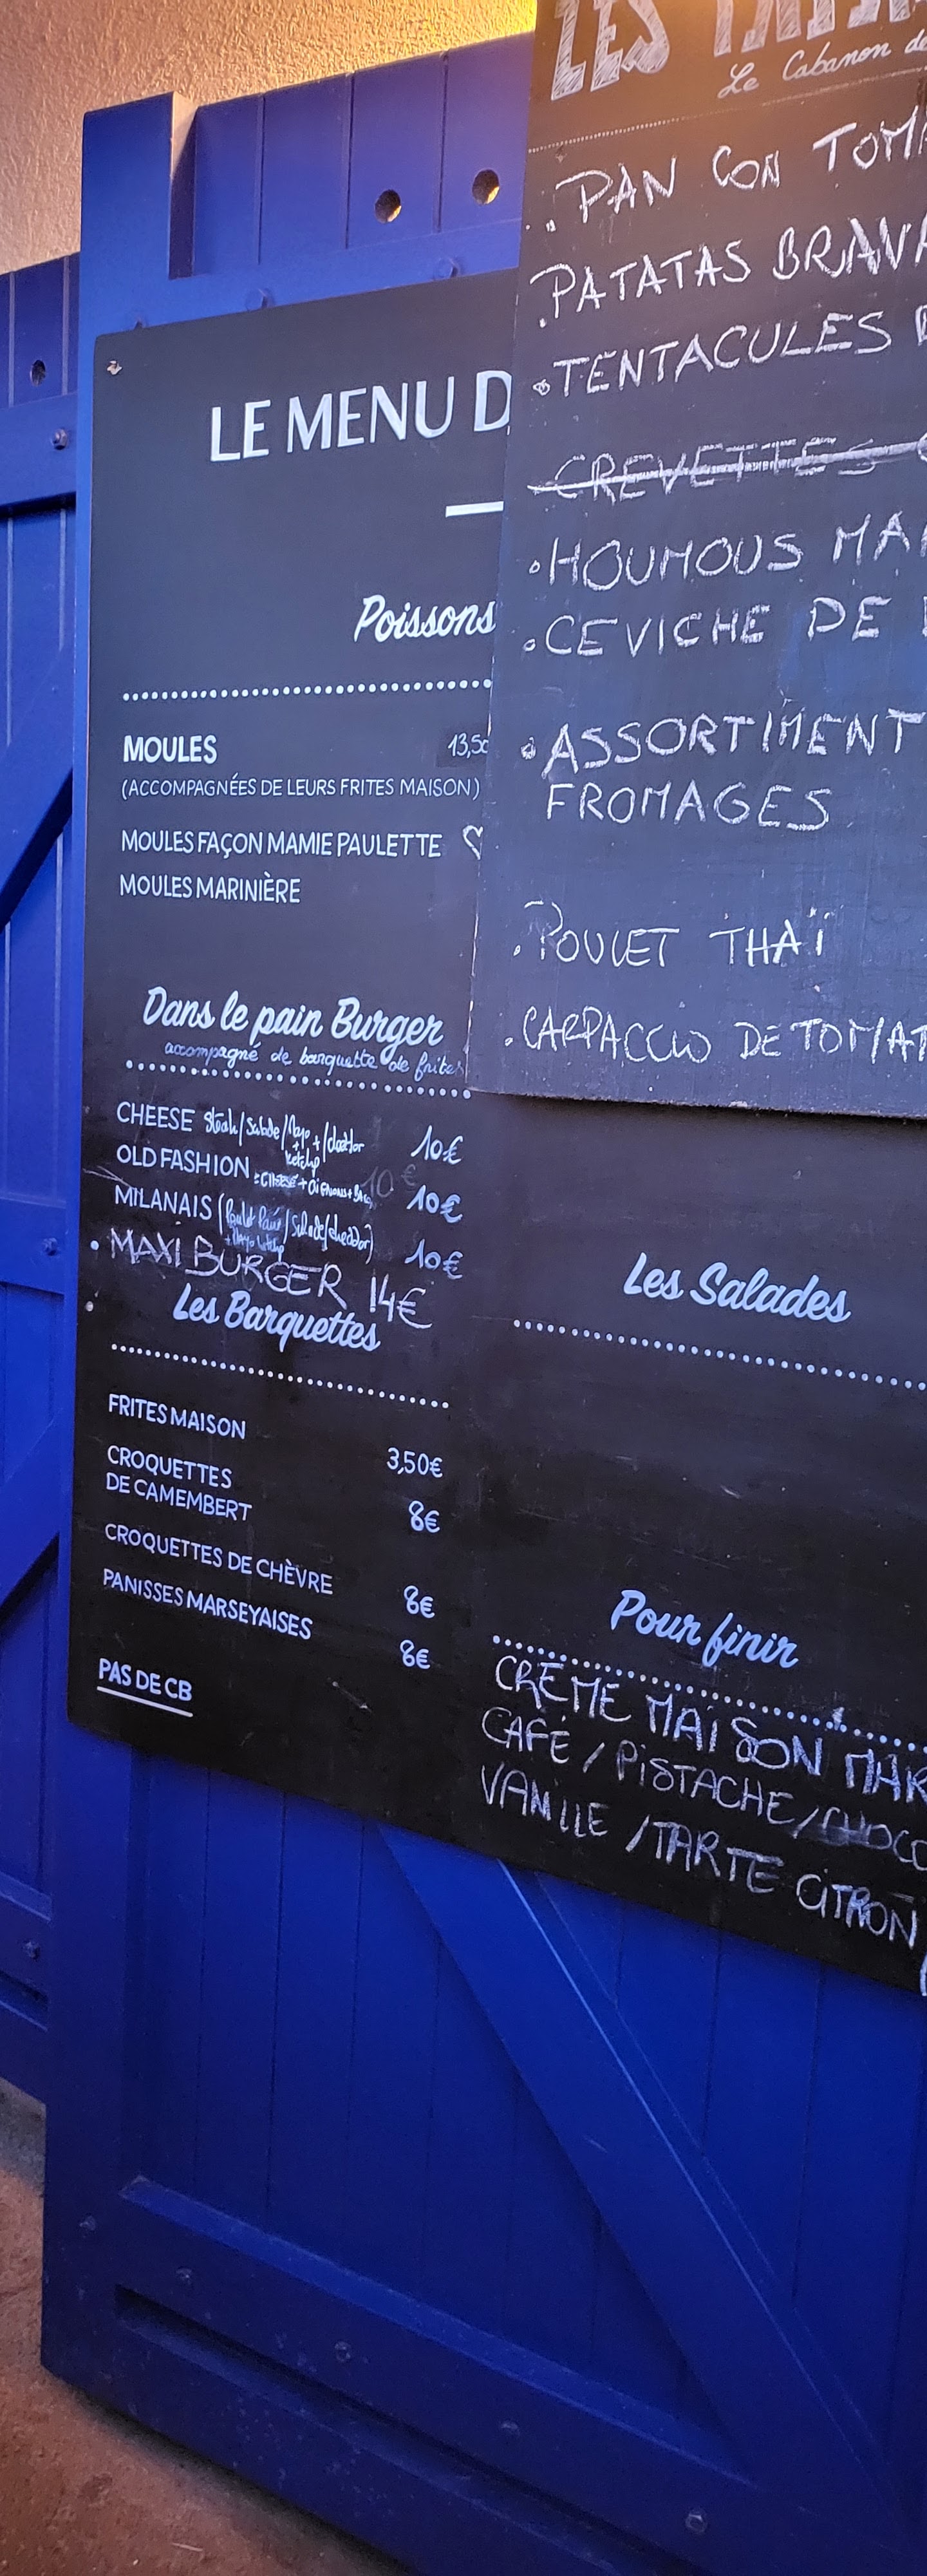 LE MENU D
Poissons
MOULES 13,50
(ACCOMPAGNÉES DE LEURS FRITES MAISON)
MOULES FAÇON MAMIE PAULETTE
MOULES MARINIÈRE
Dans le pain Burger
accompagné de barquette de frites
CHEESE Steak/Salade/Mayo+/cheddar 10€
ketchp
OLD FASHION =CHEESE+OiGNONS+ 10€ 10€
MILANAIS (Poulet Pané/Salade/cheddar) 10€
+Mayo ketchp
MAXI BURGER 14€
Les Barquettes
FRITES MAISON 3,50€
CROQUETTES
DE CAMEMBERT 8€
CROQUETTES DE CHÈVRE 8€
PANISSES MARSEYAISES 8€
PAS DE CB
LES
Le Cabanon de
PAN CON TOMA
PATATAS BRAVA
TENTACULES
CREVETTES
HOUMOUS MA
CEVICHE DE
ASSORTIMENT
FROMAGES
POULET THAÏ
CARPACCIO DE TOMAT
Les Salades
Pour finir
CRÈME MAISON MAR
CAFÉ / PISTACHE/CHOCO
VANILLE /TARTE CITRON